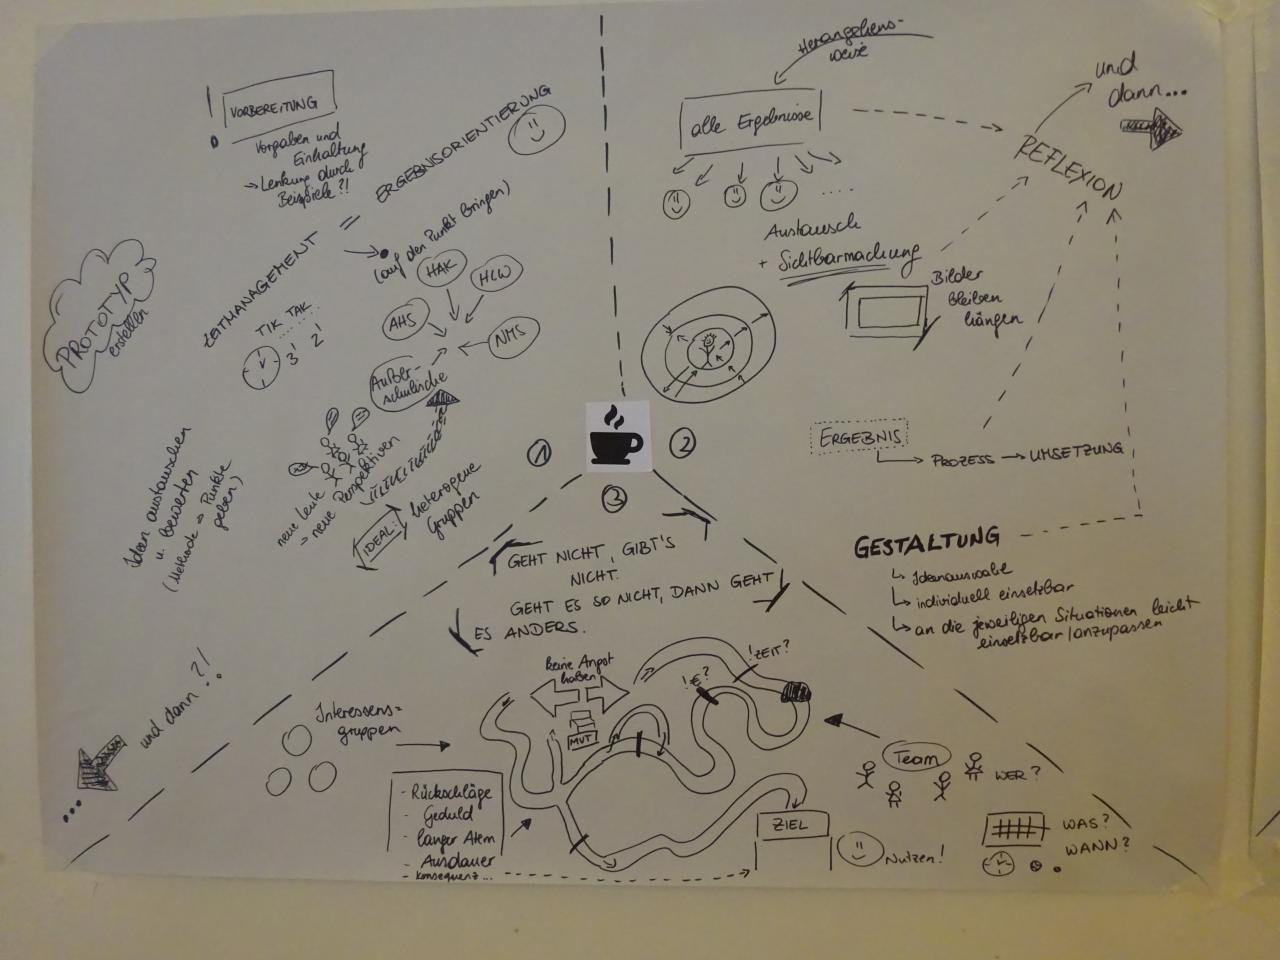 !
VORBEREITUNG
Vorgaben und
Einhaltung
→ Lenkung durch
Beispiele?!
ZEITMANAGEMENT = ERGEBNISORIENTIERUNG
(auf den Punkt bringen)
PROTOTYP
erstellen
TIK TAK
3' 2'
HAK
HLW
AHS
NMS
Außer-
schulische
neue Leute
→ neue Perspektiven
IDEAL:
heterogene
Gruppen
Ideen austauschen
u. bewerten
(Methode → Punkte
geben)
und dann?!
...
1
2
3
Herangehens-
weise
alle Ergebnisse
....
Austausch
+ Sichtbarmachung
Bilder
bleiben
hängen
REFLEXION
und
dann...
ERGEBNIS
PROZESS → UMSETZUNG
GESTALTUNG
Ideenauswahl
individuell einsetzbar
an die jeweiligen Situationen leicht
einsetzbar/anzupassen
GEHT NICHT, GIBT'S
NICHT.
GEHT ES SO NICHT, DANN GEHT
ES ANDERS.
keine Angst
haben
MUT
!€?
!ZEIT?
Interessens=
gruppen
- Rückschläge
- Geduld
- langer Atem
- Ausdauer
- Konsequenz...
ZIEL
Nutzen!
Team
WER?
WAS?
WANN?